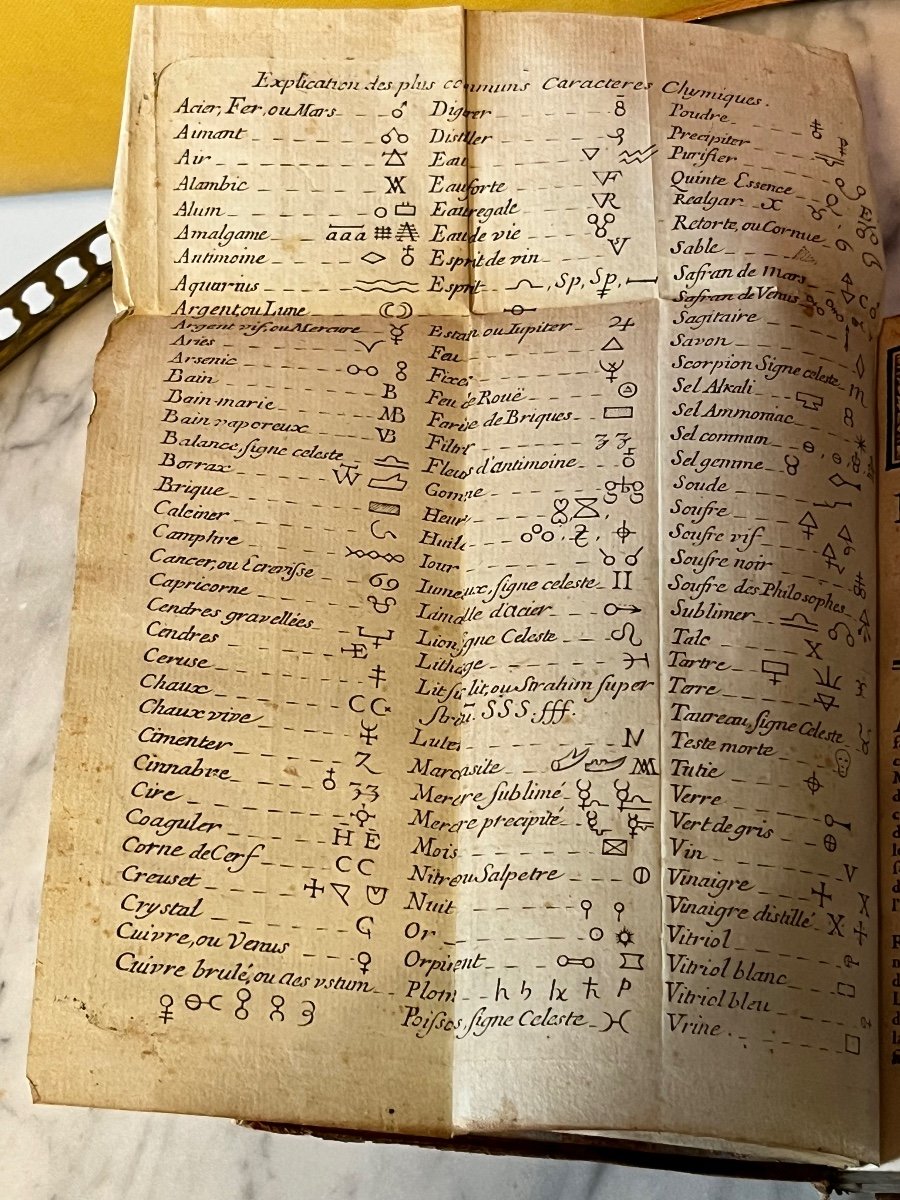 Explication des plus communs Caracteres Chymiques.
Acier, Fer, ou Mars ♂
Aimant
Air 🜁
Alambic
Alum
Amalgame aaa
Antimoine ♁
Aquarius
Argent ou Lune
Argent vif, ou Mercure ☿
Aries
Arsenic
Bain B
Bain marie MB
Bain vaporeux VB
Balance, signe celeste ♎
Borrax
Brique
Calciner
Camphre
Cancer, ou Ecrevisse ♋
Capricorne
Cendres gravellées
Cendres E
Ceruse
Chaux C C
Chaux vive
Cimenter Z
Cinnabre 33
Cire
Coaguler H E
Corne de Cerf C C
Creuset
Crystal
Cuivre, ou Venus ♀
Cuivre brulé, ou aes vstum
Digerer
Distiller
Eau ▽
Eau forte VF
Eau regale VR
Eau de vie
Esprit de vin
Esprit , Sp, Sp,
Estan ou Iupiter ♃
Feu △
Fixes
Feu de Rouë
Farine de Briques
Filtr
Fleurs d'antimoine
Gomme
Heure
Huile
Iour
Iumeaux, signe celeste II
Limaille d'acier
Lion signe Celeste ♌
Litharge
Lit sur lit, ou Strahim super
Stratu. SSS. fff.
Luter
Marcasite
Mercure sublimé
Mercure precipité
Mois
Nitre ou Salpetre
Nuit
Or ☉
Orpiment
Plomb ♄
Poissons, signe Celeste ♓
Poudre
Precipiter
Purifier
Quinte Essence
Realgar
Retorte, ou Cornue
Sable
Safran de Mars
Safran de Venus
Sagitaire
Savon
Scorpion Signe celeste
Sel Alkali
Sel Ammoniac
Sel commun
Sel gemme
Soude
Soufre
Soufre vif
Soufre noir
Soufre des Philosophes
Sublimer
Talc X
Tartre
Terre
Taureau, signe Celeste
Teste morte
Tutie
Verre
Vert de gris ⊕
Vin V
Vinaigre
Vinaigre distillé
Vitriol
Vitriol blanc
Vitriol bleu
Vrine. □